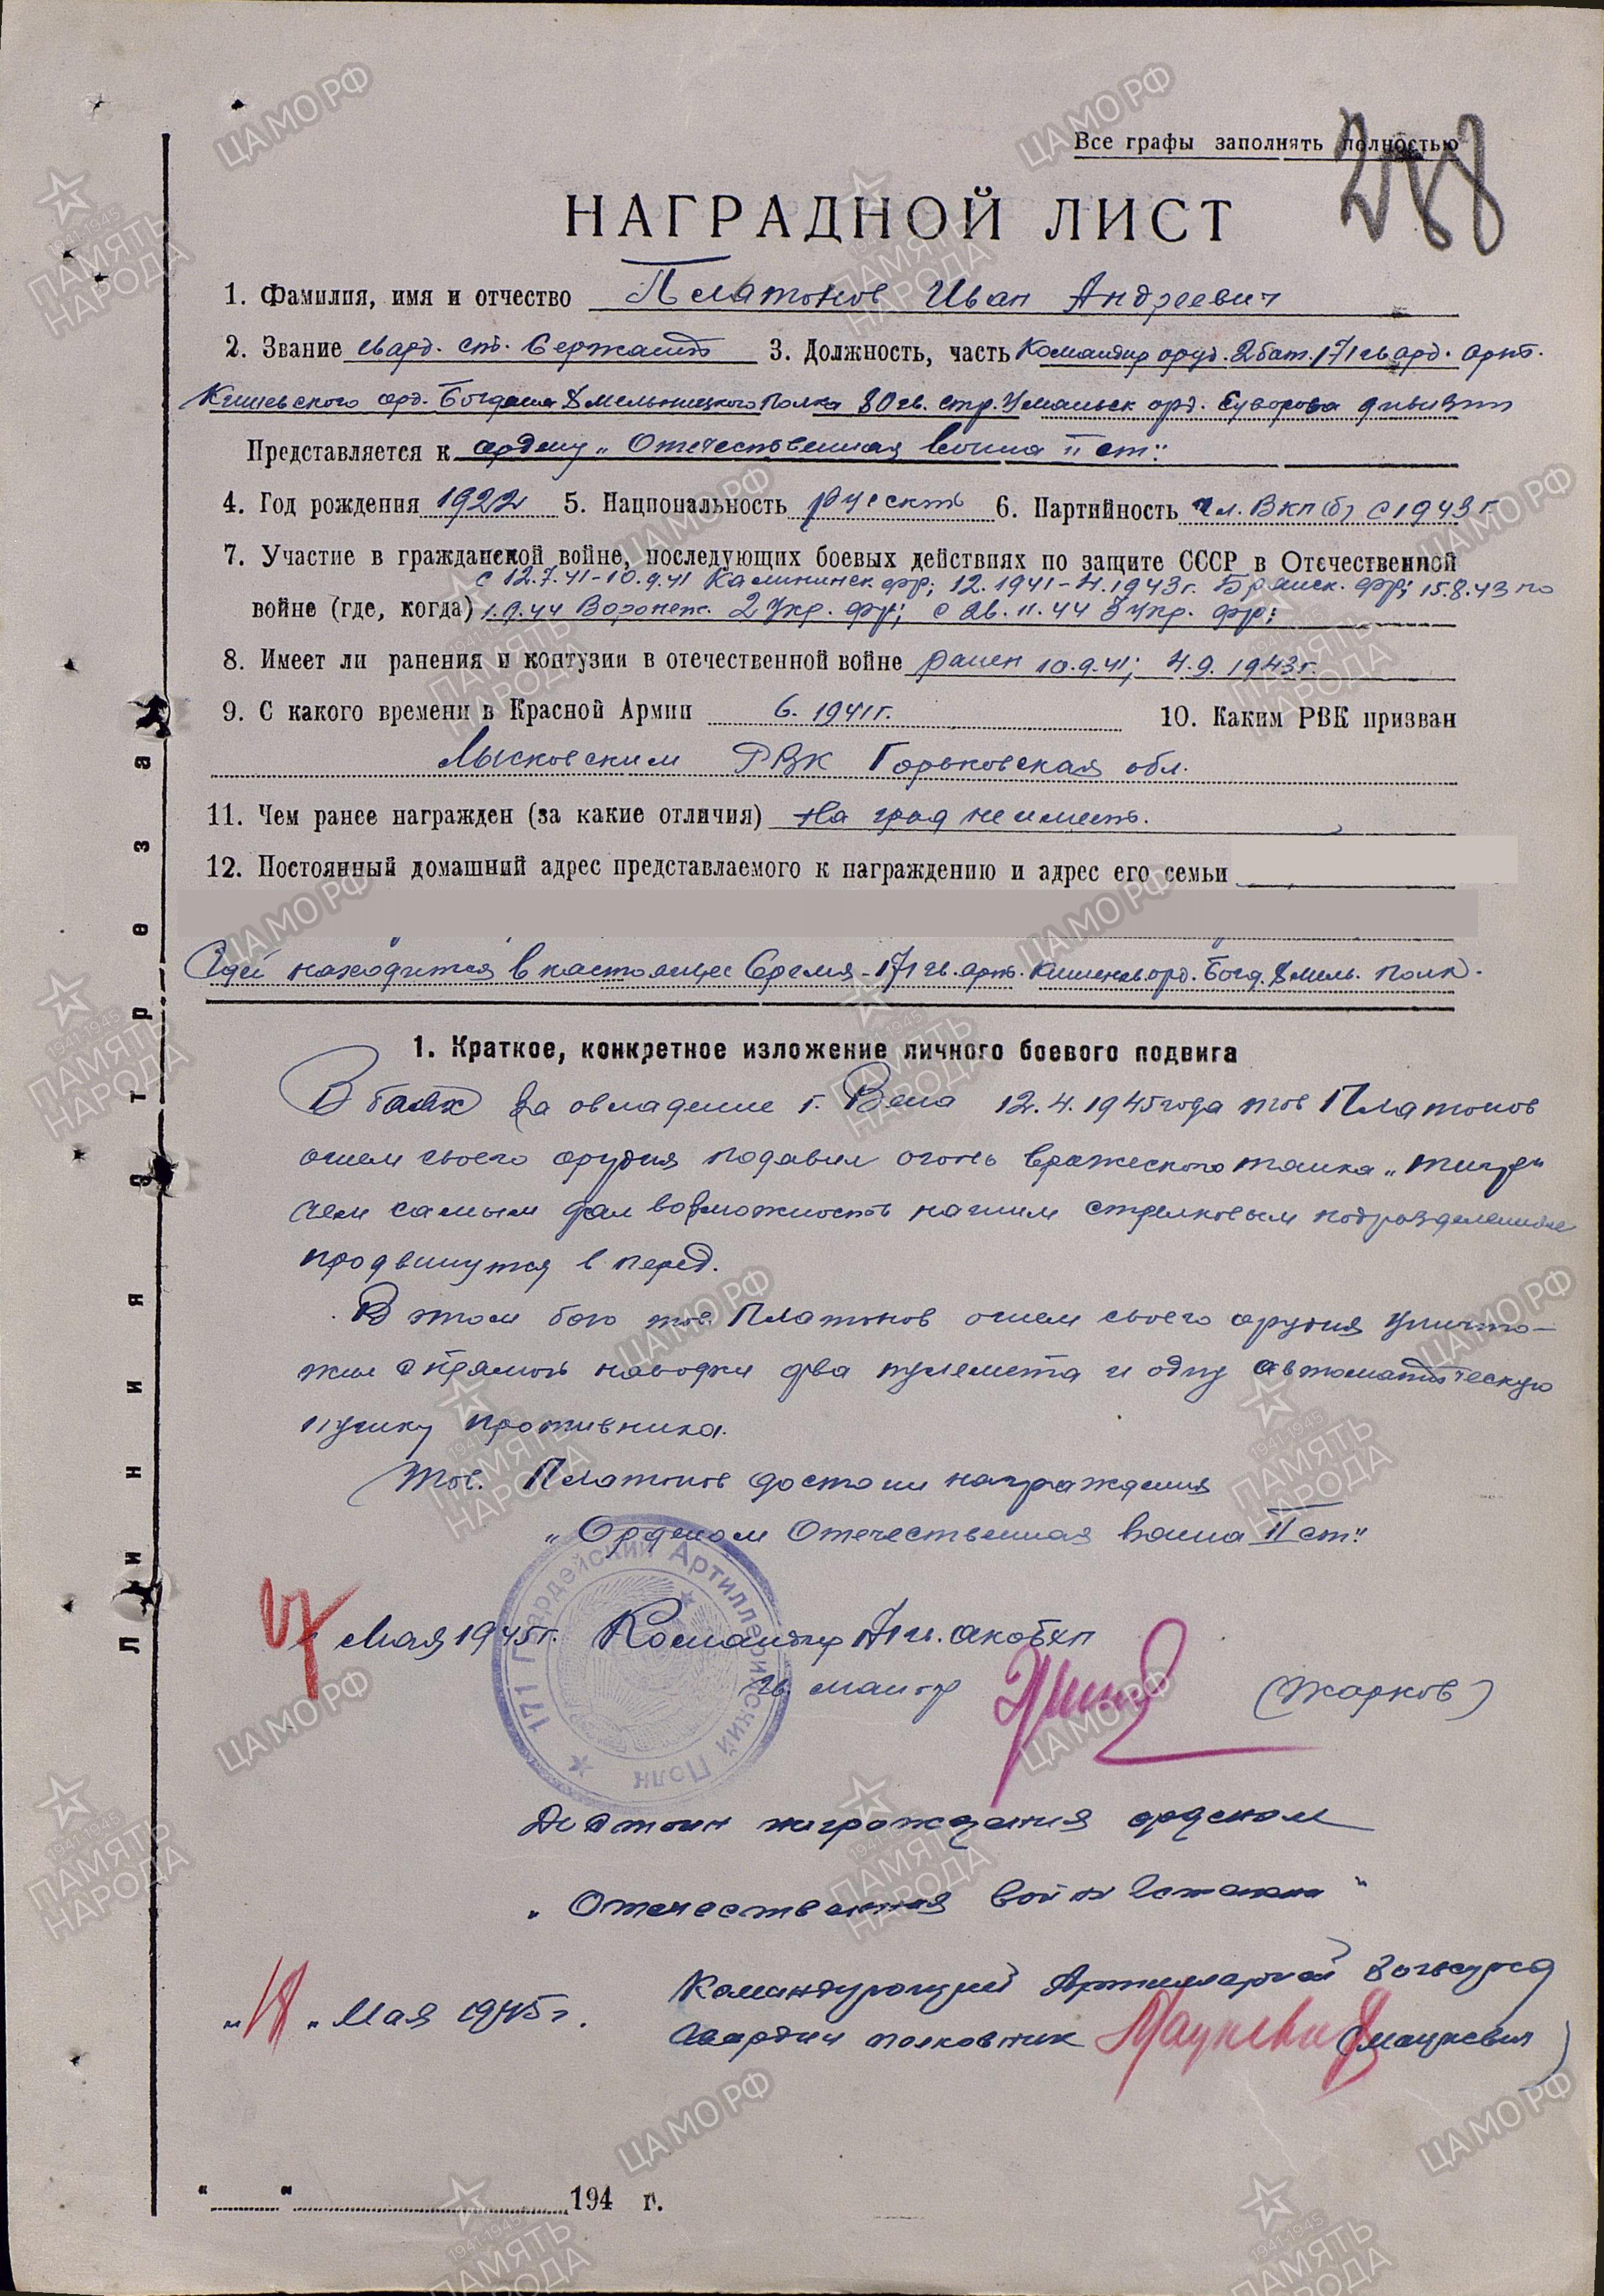 Все графы заполнять полностью
288
НАГРАДНОЙ ЛИСТ
1. Фамилия, имя и отчество Платонов Иван Андреевич
2. Звание гвард. ст. Сержант 3. Должность, часть Командир оруд. 2 бат. 171 гвард. арт.
Кишеневского орд. Богдана Хмельницкого Полка 80 гв. стр. Уманьск орд. Суворова дивизии
Представляется к ордену „Отечественная война II ст."
4. Год рождения 1922 5. Национальность русский 6. Партийность чл. ВКП(б) с 1943 г
7. Участие в гражданской войне, последующих боевых действиях по защите СССР в Отечественной
с 12.7.41-10.9.41 Калининск. фр; 12.1941-4.1943г. Брянск. фр; 15.8.43 по
войне (где, когда) 1.9.44 Воронеж. 2 Укр. фр; с 26.11.44 3 Укр. фр;
8. Имеет ли ранения и контузии в отечественной войне ранен 10.9.41; 4.9.1943г.
9. С какого времени в Красной Армии 6.1941г. 10. Каким РВК призван
Лысковским РВК Горьковская обл.
11. Чем ранее награжден (за какие отличия) Наград не имеет.
12. Постоянный домашний адрес представляемого к награждению и адрес его семьи
Где находится в настоящее Время - 171 гв. арт. Кишенев. орд. Богд. Хмель. полк.
1. Краткое, конкретное изложение личного боевого подвига
В боях за овладение г. Вена 12.4.1945 года тов Платонов
огнем своего орудия подавил огонь вражеского танка „тигр"
чем самым дал возможность нашим стрелковым подразделениям
продвинутся в перед.
В этом бою тов. Платонов огнем своего орудия уничто-
жил с прямой наводки два пулемета и одну автоматическую
пушку противника.
Тов. Платонов достоин награждения
„Орденом Отечественная война II ст."
Мая 1945г. Командир 171 гв. акобхп
гв. маиор (Жарков)
171 Гвардейский Артиллерийский Полк
Достоин награждения орденом
„Отечественная войн 2 степени"
„ " Мая 1945 г. Командующий Артиллерией
Гвардии полковник Мацкевич (Мацкевич)
" " 194 г.
Линия отреза
ЦАМО.РФ
1941-1945
ПАМЯТЬ
НАРОДА